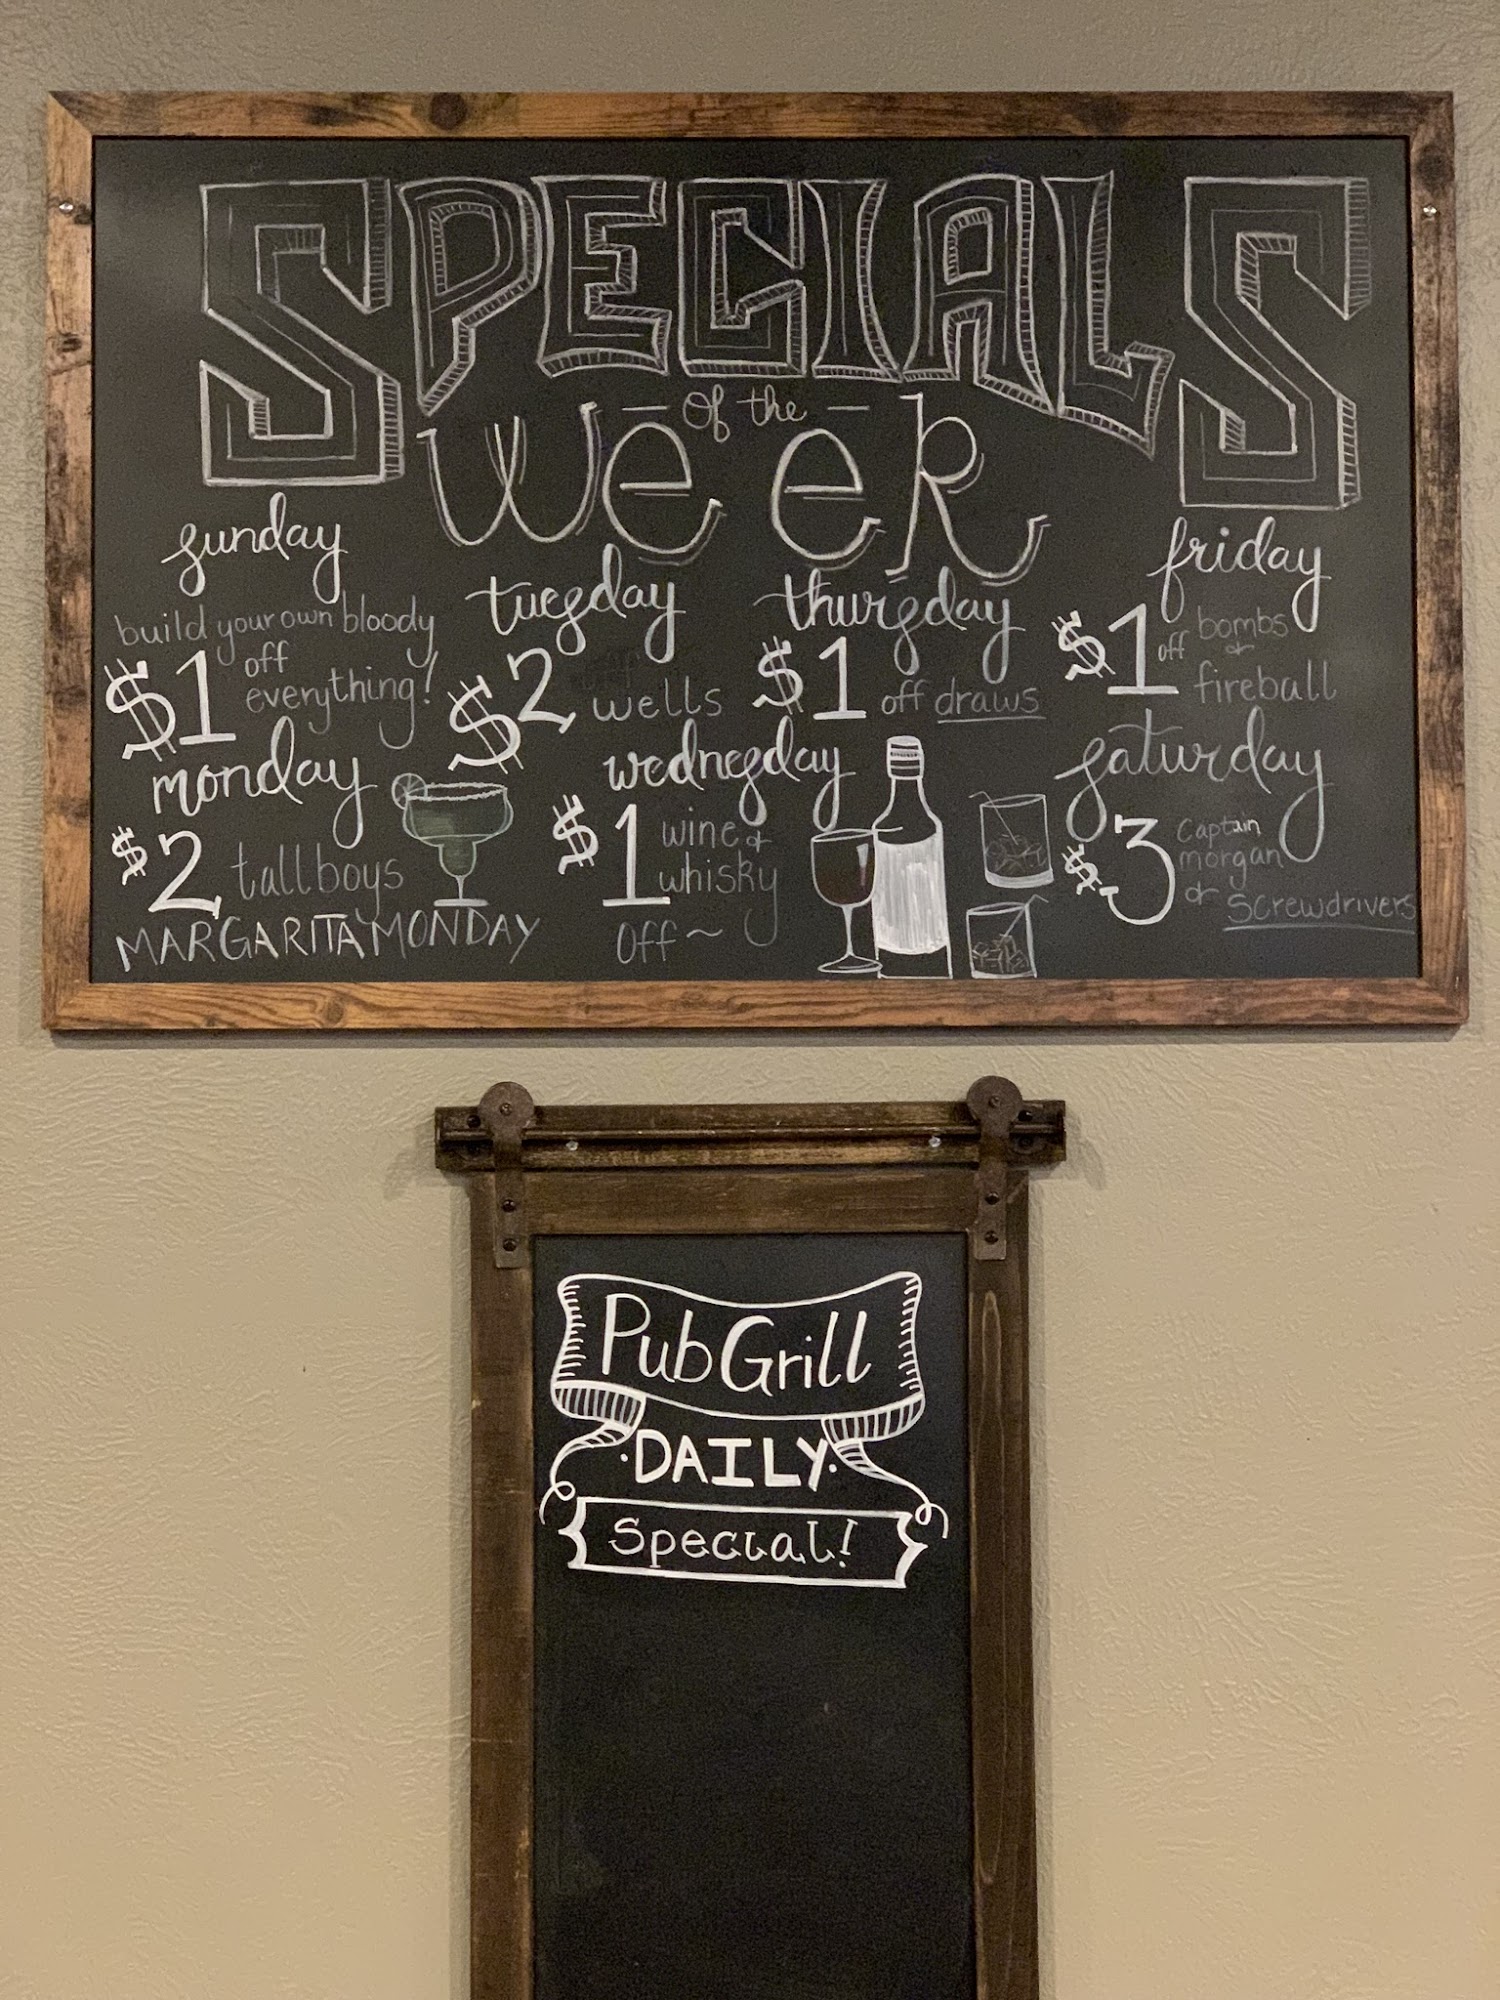 SPECIALS
of the
Week
sunday
build your own bloody
$1 off
everything!
monday
$2 tallboys
MARGARITA MONDAY
tuesday
$2 wells
wednesday
$1 wine &
whisky
off ~
thursday
$1 off draws
friday
$1 off bombs
&
fireball
saturday
$3 Captain
morgan
or screwdrivers
Pub Grill
·DAILY·
Special!